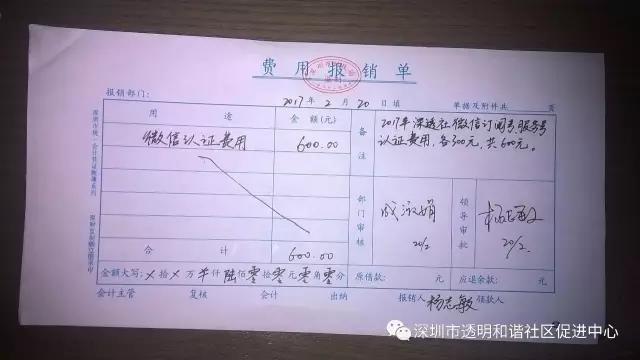 费用报销单
报销部门： 2017年2月20日填 单据及附件共 页
用途 金额(元)
微信认证费用 600.00
备注
2017年深透社微信订阅号、服务号
认证费用，各300元，共600元。
合计 600.00
部门审核 成淑娟 20/2
领导审批 杨志敏 20/2.
金额大写：拾万仟陆佰零拾零元零角零分 原借款： 元 应退余款： 元
会计主管 复核 会计 出纳 报销人 杨志敏 领款人
深圳市透明和谐社区促进中心